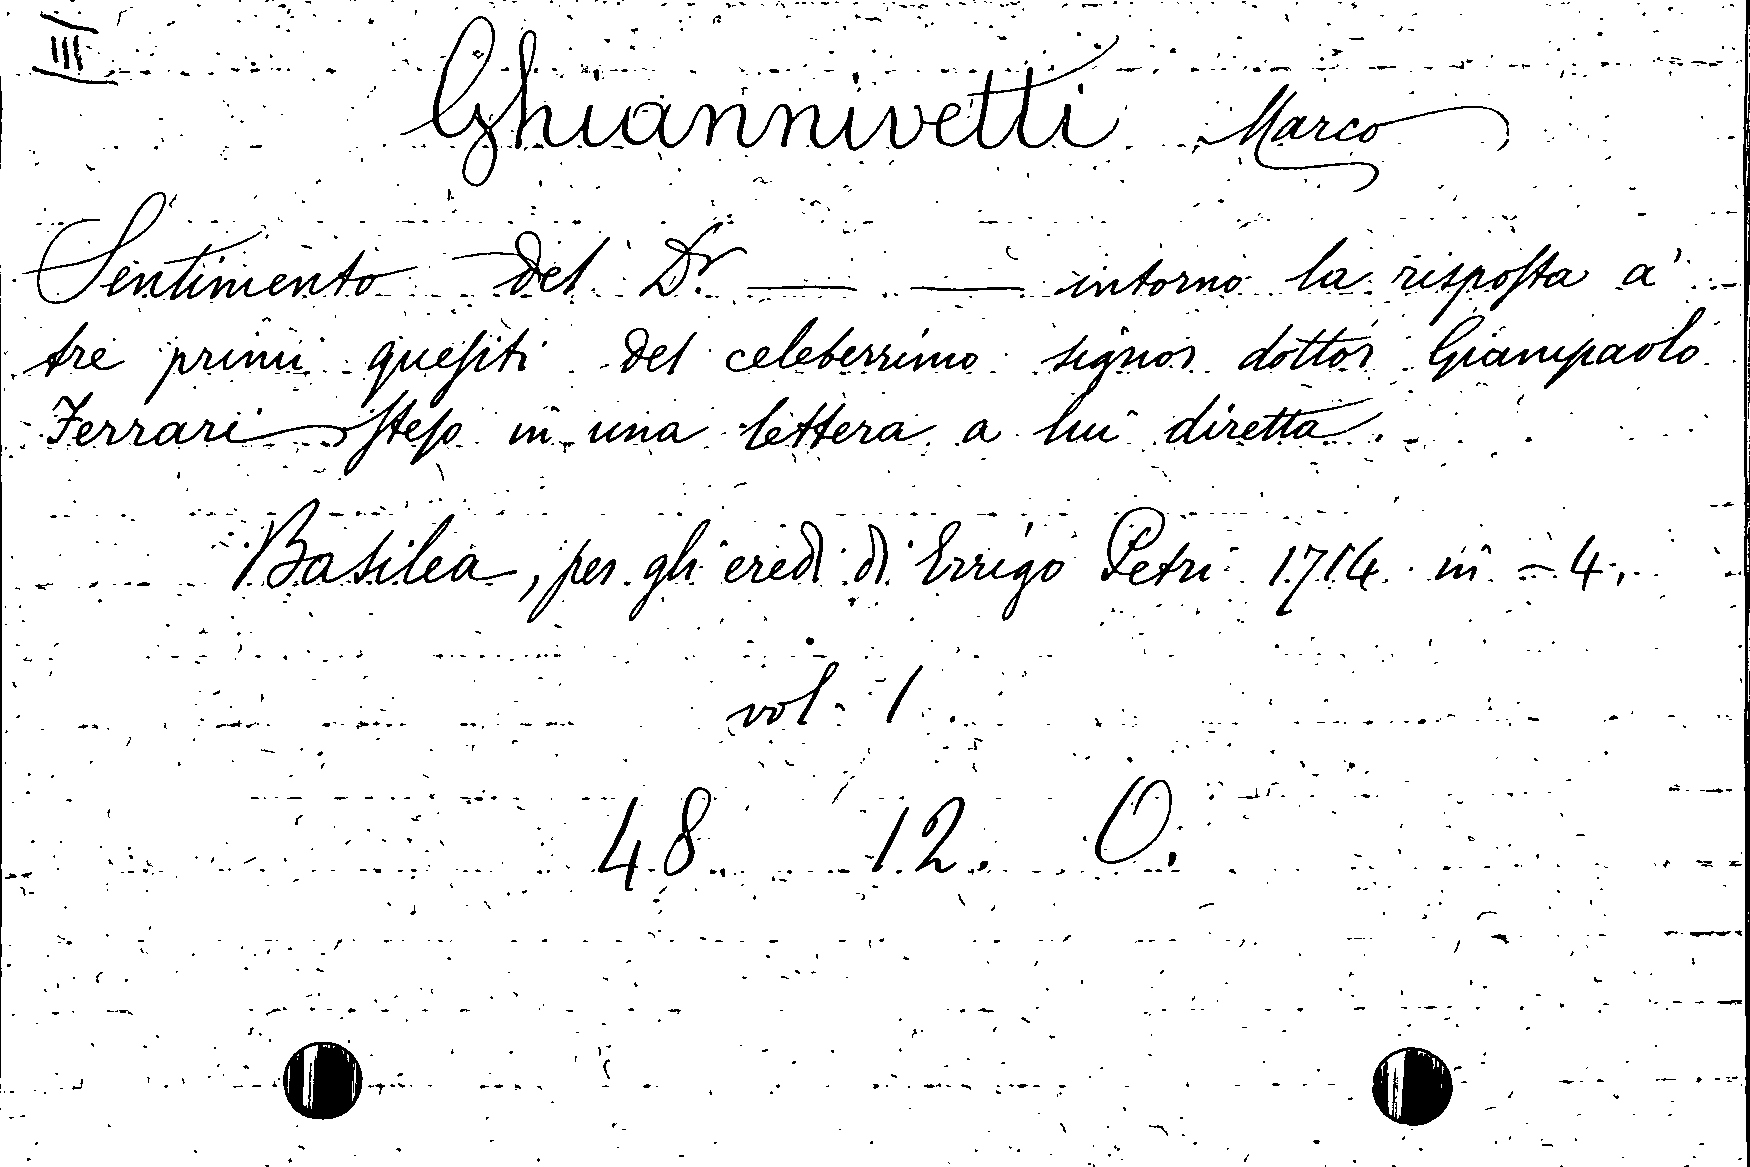 III
Ghiannivetti Marco
Sentimento del Dr. —— —— intorno la risposta a'
tre primi quesiti del celeberrimo signor dottor Giampaolo
Ferrari steso in una lettera a lui diretta.
Basilea, per gli eredi di Errigo Petri 1714 in-4.
vol. 1.
48 12. O.